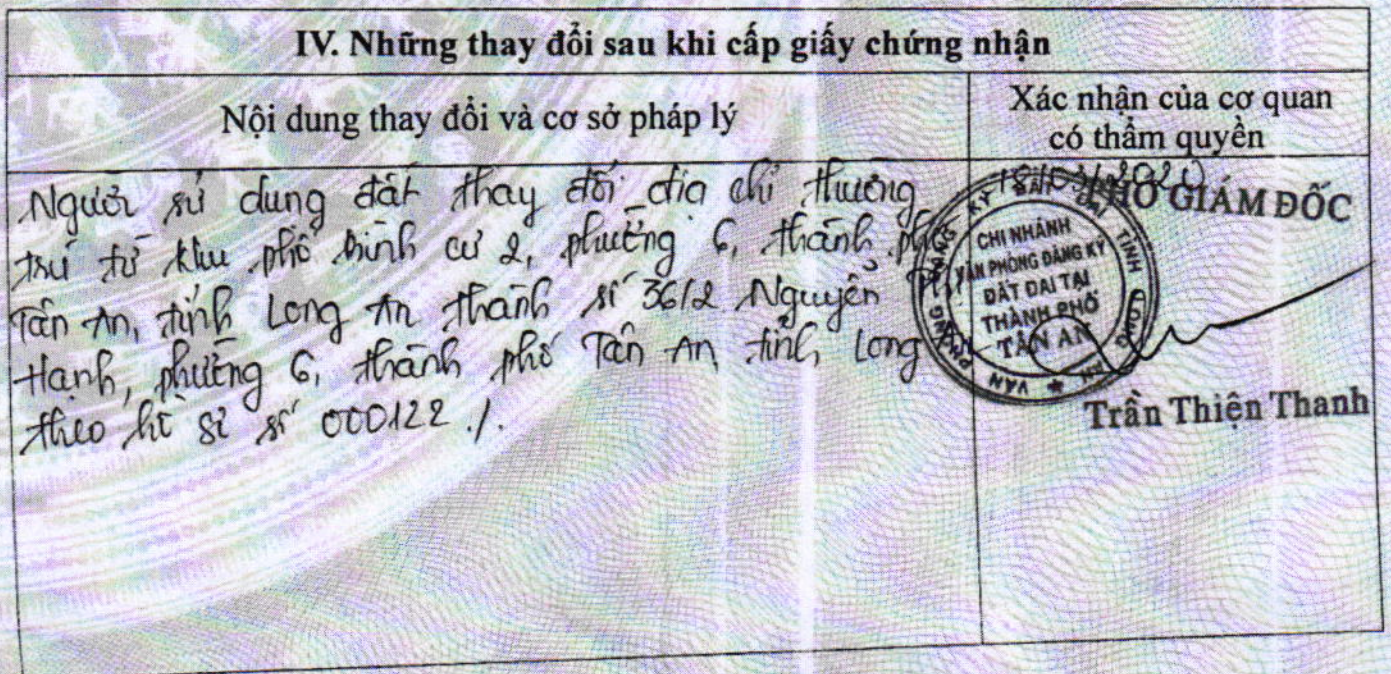 IV. Những thay đổi sau khi cấp giấy chứng nhận
Nội dung thay đổi và cơ sở pháp lý
Xác nhận của cơ quan
có thẩm quyền
Người sử dụng đất thay đổi địa chỉ thường
trú từ khu phố Bình Cư 2, phường 6, thành phố
Tân An, tỉnh Long An thành số 36/2 Nguyễn
Hạnh, phường 6, thành phố Tân An, tỉnh Long
theo hồ sơ số 000122./.
PHÓ GIÁM ĐỐC
VĂN PHÒNG ĐĂNG KÝ ĐẤT ĐAI TỈNH LONG AN
CHI NHÁNH
VĂN PHÒNG ĐĂNG KÝ
ĐẤT ĐAI TẠI
THÀNH PHỐ
TÂN AN
Trần Thiện Thanh